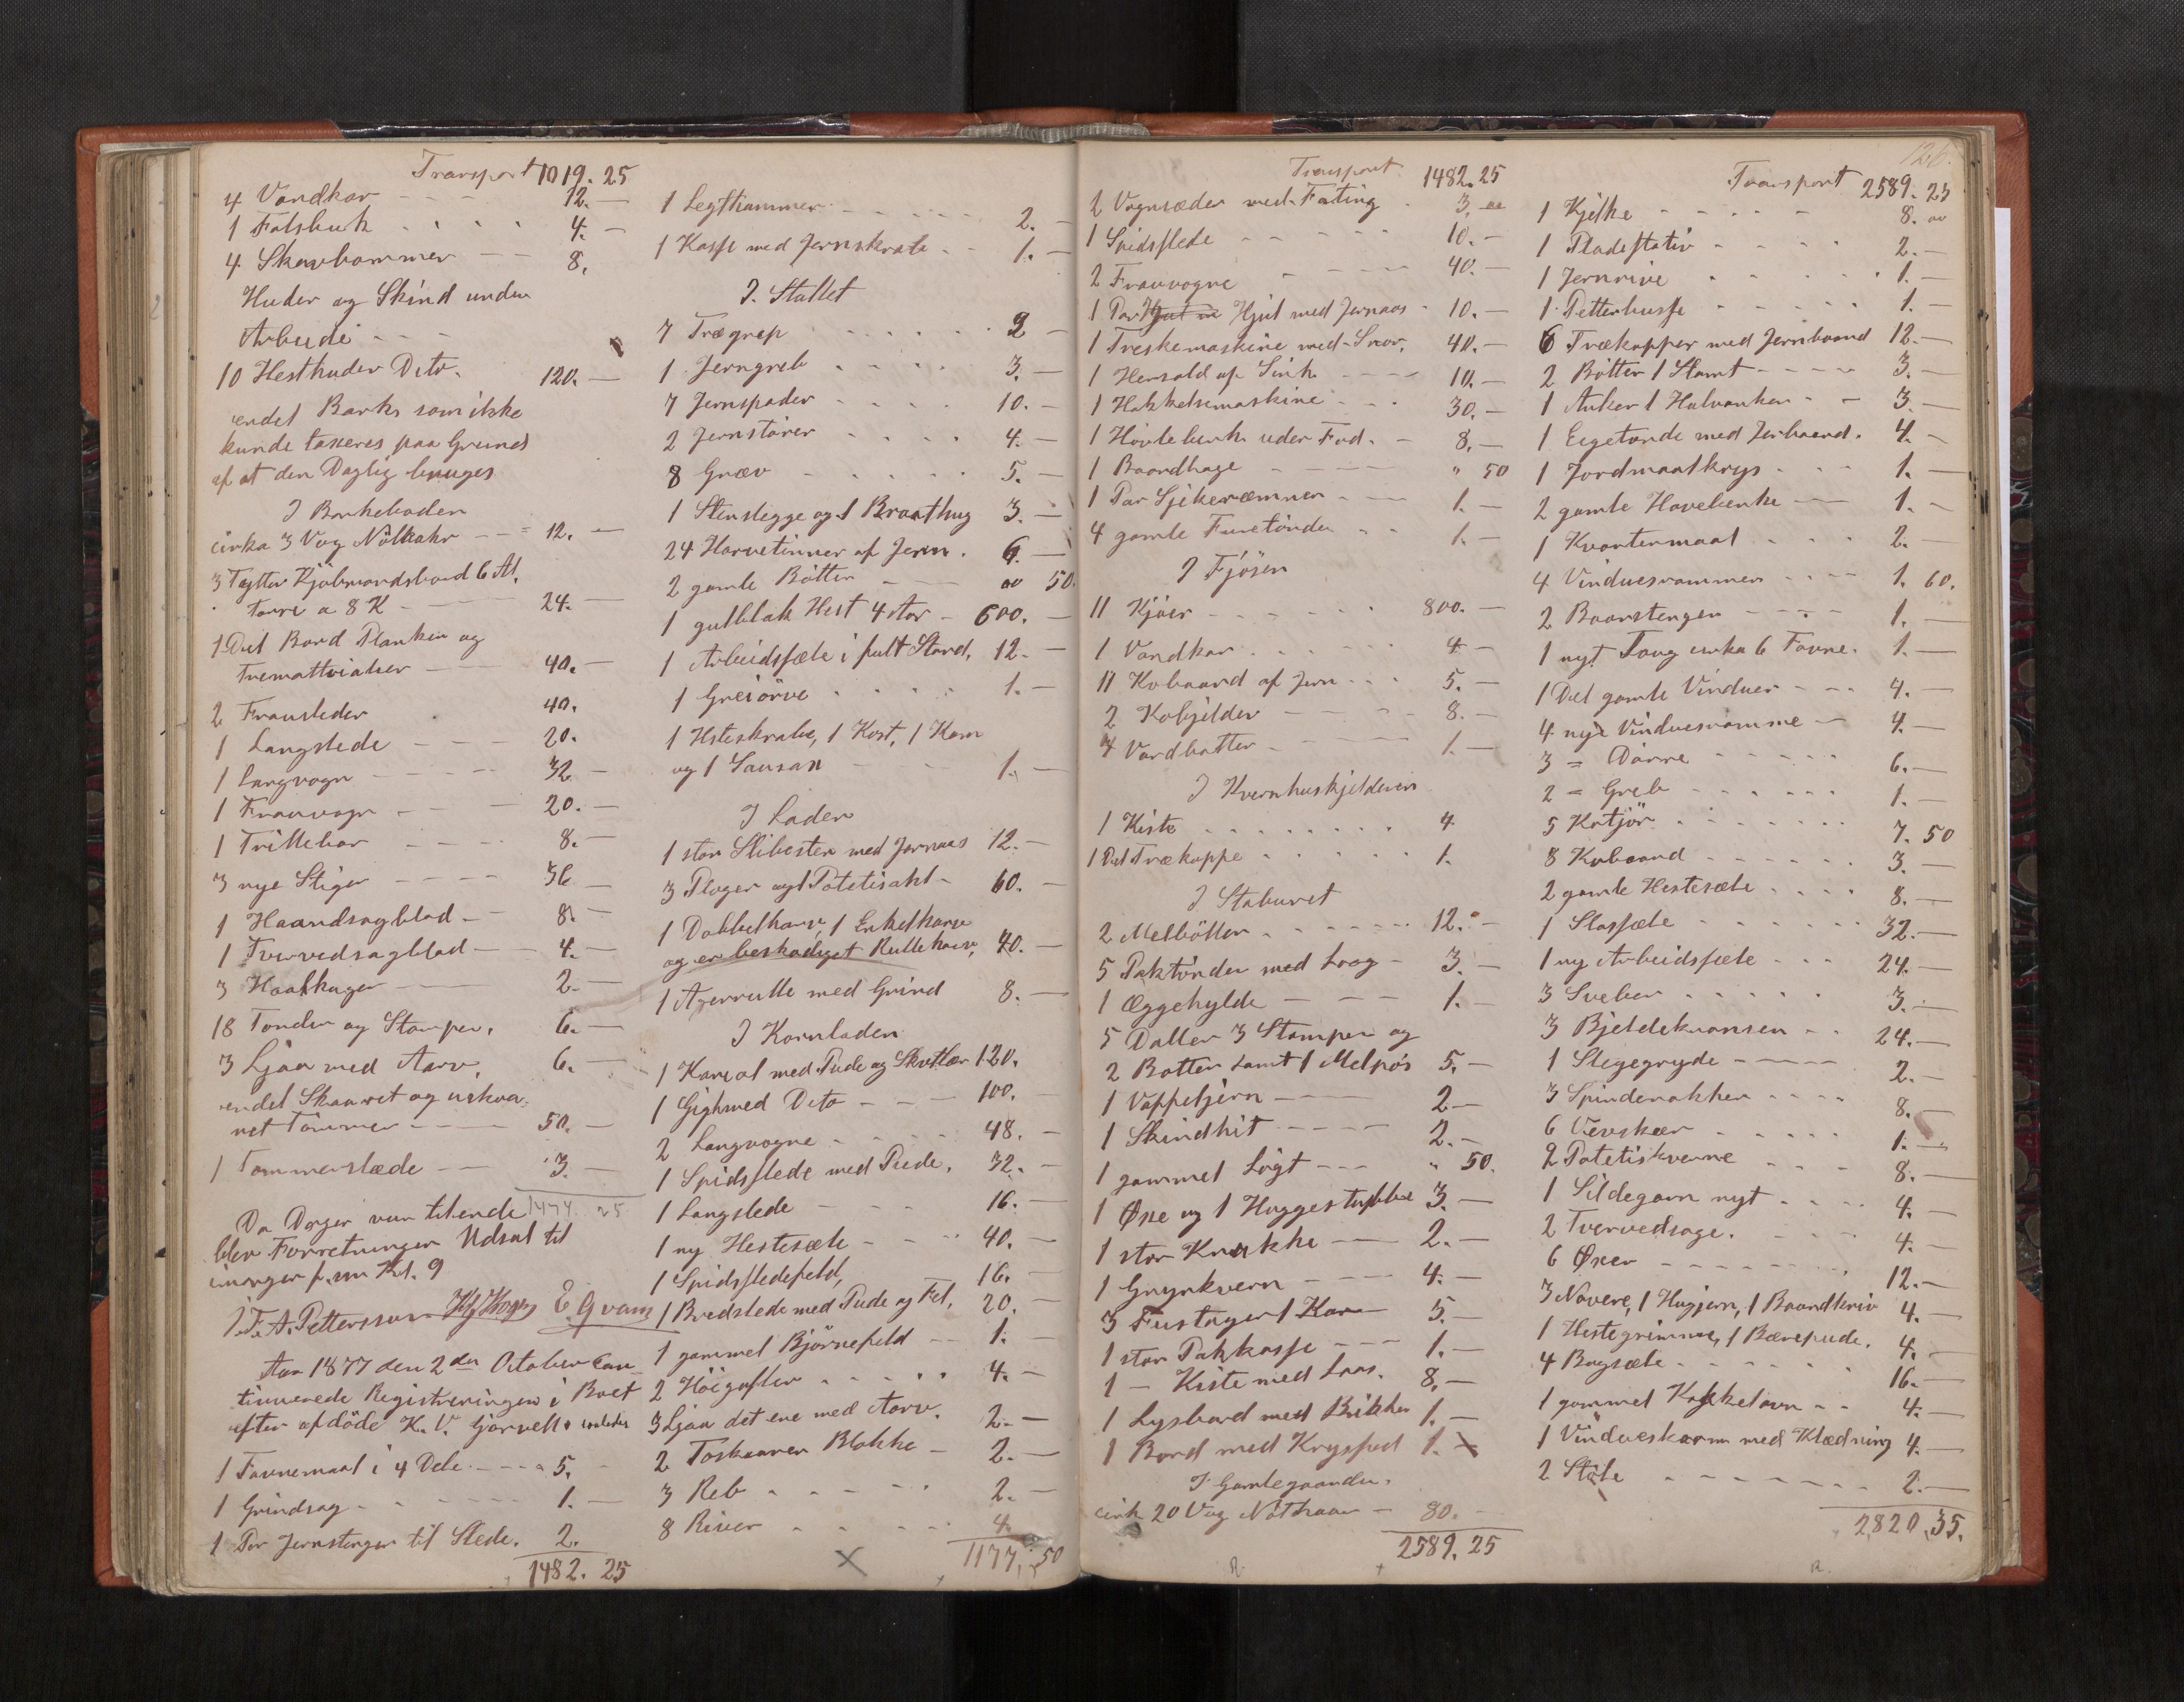 Transport 1019. 25
4 Vandkar - - - 12. —
1 Falsbuk . . . . 4. —
4 Skavhammer - - 8.
Huder og Skind under
Arbeide - - -
10 Hesthuder Dito. 120. —
endel Barks som ikke
kunde taxeres paa Grund
af at den Daglig bruges
I Barkeboden
cirka 3 Vog Nötkahr - - 12. —
3 Tylter Kjöbmandsbord 6 Al.
a 8 K - 24. —
1 Del Bord Planker og
Tremattrialier - 40. —
2 Frausleder 40.
1 Langslede - - - 20.
1 Langvogn - - - 32. —
1 Frauvogn - - - 20. —
1 Trillebor - - - 8. —
3 nye Stiger - - - 36 —
1 Haandsagblad - - 8. —
1 Tvervedsagblad - 4. —
3 Haalkager - - 2. —
18 Tonder og Stamper. 6. —
3 Ljaa med Aarv. 6. —
endel Skaaret og uskaa-
ret Tömmer - - - 50. —
1 Tommerslæde - - 3. —
1474. 25
Da Dagen var tilende
blev Forretningen Udsat til
imorgen f.m Kl. 9
J. F. A. Pettersson E. Qvam
Aar 1877 den 2den October Con-
tinuerede Registreringen i Boet
efter afdöde K. V.
1 Favnemaal i 4 Dele. - - 5. -
1 Grindsag - - - 1. —
1 Par Jernstenger til Slede. 2.
1482. 25
1 Legthammer - - - 2. —
1 Kasse med Jernskrab - - 1. —
I. Stallet
7 Trægrep . . . . . 2 —
1 Jerngreb . . . . 3. —
7 Jernspader . . . . 10. —
2 Jernstörer . . . . 4. —
8 Græv - . . . . 5. —
1 Stenslegge og 1 Braathug 3. —
24 Harvetinner af Jern . 6. —
2 gamle Bötter - - 50.
1 gulblak Hest 4 Aar - 600. —
1 Arbeidssæle i fult Stand. 12. —
1 Greiörve . . . . . 1. —
1 Hsteskrabe, 1 Kost, 1 Kam
og 1 Sausax - - 1. —
I Laden
1 stor Slibesten med Jernaas 12. —
3 Ploger og 1 Potetisahl - 60. —
1 Dobbelharv, 1 Enkelharv
og en beskadiget Rulleharv, 40. —
1 Agerrulle med Grind 8. —
I Kornladen
1 Kariol med Pude og Skvetlær 120.
1 Gighmed Dito - - - 100.
2 Langvogne - - - 48. —
1 Spidsslede med Pude. 32. —
1 Langslede - - - 16. —
1 ny Hestesæle - - - 40. —
1 Spidsledefeld, 16. —
1 Bredslede med Pude og Fel. 20. —
1 gammel Björnefeld - - 1. —
2 Höigafler . . . . . 4. —
3 Ljaa det ene med Aarv. 2. —
2 Toskaarne Blokke - 2. —
3 Reb . . . . . 2. —
8 River . . . . . 4.
1177. 50
Transport 1482. 25
2 Vognsæder med Fating . 3.
1 Spidsslede - - - 10. —
2 Frauvogne - - - 40. —
1 Par Hjul med Jernaas - 10. —
1 Treskemaskine med Snor. 40. —
1 Hersald af Sink - - - 10. —
1 Hakkelsemaskine - - 30. —
1 Hövlebenk uder Fod. - 8. —
1 Baandhage - - - " 50
1 Par - - 1. —
4 gamle . . 1. —
I Fjösen
11 Kjöer - - - 800. —
1 Vandkar . . . . . 4 —
11 Kobaand af Jern . . . 5. —
2 Kobjelder - - - 8. —
4 Vandbøtter - - - 1. —
I Kvernhuskjelderen
1 Kiste . . . . . . . 4
1 Del Trækoppe . . . . 1.
I Staburet
2 Melbötter - - - 12. —
5 Paktönder med Laag - 3. —
1 Æggehylde - - - 1. —
5 Daller 3 Stamper og
2 Bøtter samt 1 Melpös 5. —
1 Vappeljern - - - 2 —
1 Skindhit - - - 2. —
1 gammel Lögt - - - " 50.
1 Øxe og 1 Huggestabbe 3. —
1 stor Krukke - - 2. —
1 Grynkvern - - - 4. —
3 Fustager 1 Kar - 5. —
1 stor Pakkasse - - - 1. —
1 — Kiste med Laas. 8. —
1 Lysbord med Brikker 1. —
1 Bord med Krysfod 1. —
I Gamlegaarden.
cirk 20 Vog Nöthaar - 80. —
2589. 25
126.
Transport 2589. 25
1 Kjelke - - - 8.
1 Pladestativ - - - 2. —
1 Jernrive . . . . . 1. —
1 - - - 1. —
6 Trækopper med Jernbaand 12. —
2 Bötter 1 Stamt - - - 3. —
1 Anker 1 Halvanker - - 3. —
1 Eegetonde med Jerbaand. 4. —
1 Jordmaalkrys . . . 1. —
2 gamle Havebenke - - 1. —
1 Kvartermaal . . . . 2. —
4 Vinduesrammer - - - 1. 60.
2 Baarstenger - - - 1. —
1 nyt Toug cirka 6 Favne. 1. —
1 Del gamle Vinduer - - - 4. —
4 nye Vinduesramme - 4. —
3 = Dörre . . . . . 6. —
2 = Greb - - - - 1. —
5 Kotjör . . . . . 7. 50
8 Kobaand - - - - 3. —
2 gamle Hestesæle . . . . 8. —
1 Stassæle - - - - 32. —
1 ny Arbeidssæle - - - 24. —
3 Sveber . . . . . 3. —
3 Bjeldekransen - - 24. —
1 Stegegryde - - - 2. —
3 Spinderokker . . . . 8. —
6 Vevskeer - - - 1. —
2 Potetiskverne - - - 8. —
1 Sildegarn nyt . . . . 4. —
2 Tvervedsage. - - - 4. —
6 Øxer - - - - - 12. —
3 Navere, 1 Hugjern, 1 Baandkniv 4. —
1 Hestegrimme, 1 Bærepude. 4. —
4 Bogsæle - - - - 16. —
1 gammel Kakkelovn - - 4. —
1 Vindueskarm med Klædning 4. —
2 Stole - - - - - 2. —
2820. 35.